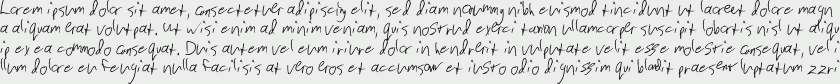 Lorem ipsum dolor sit amet, consectetuer adipiscing elit, sed diam nonummy nibh euismod tincidunt ut laoreet dolore magn
a aliquam erat volutpat. Ut wisi enim ad minim veniam, quis nostrud exerci tation ullamcorper suscipit lobortis nisl ut aliqu
ip ex ea commodo consequat. Duis autem vel eum iriure dolor in hendrerit in vulputate velit esse molestie consequat, vel i
llum dolore eu feugiat nulla facilisis at vero eros et accumsan et iusto odio dignissim qui blandit praesent luptatum zzr